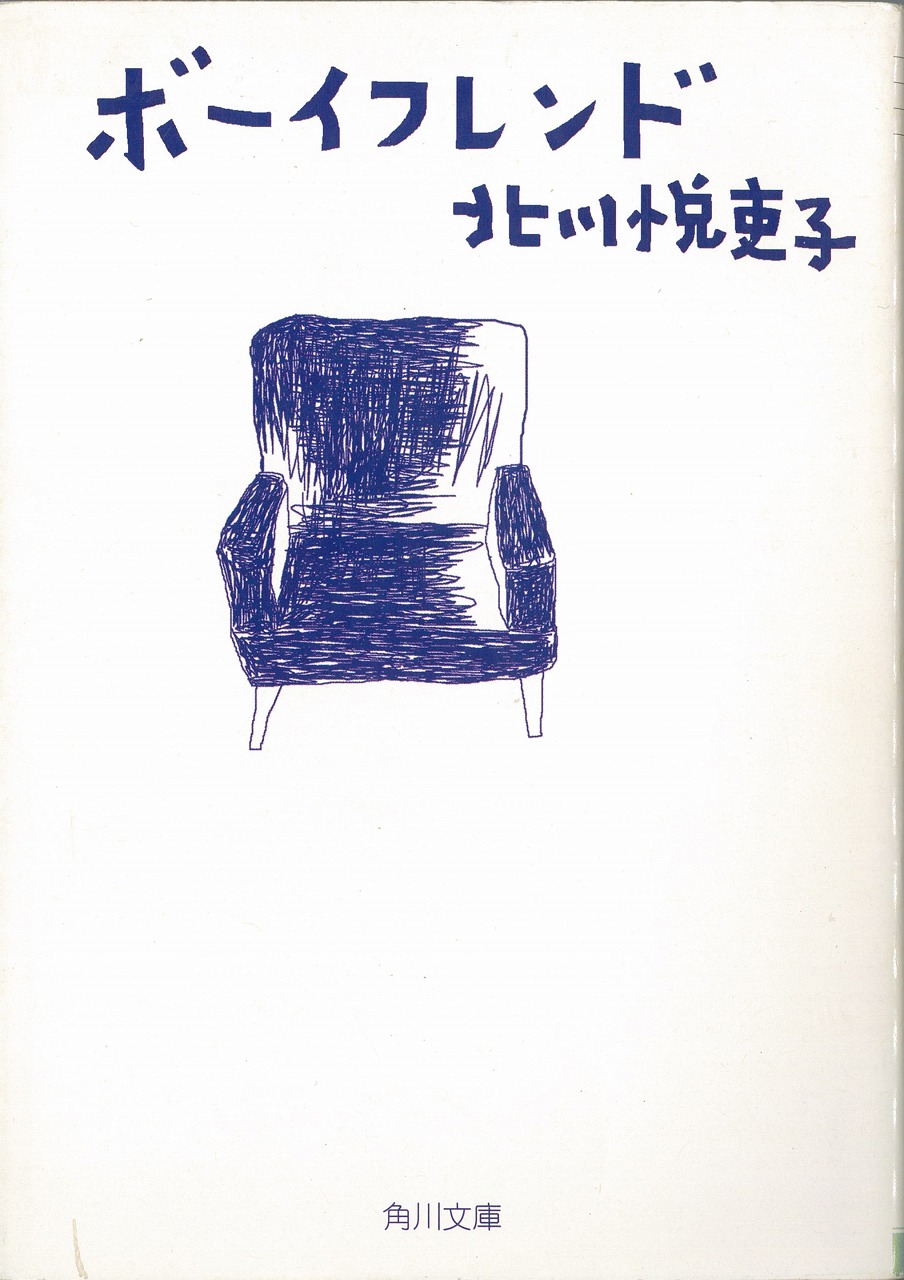 ボーイフレンド
北川悦吏子
角川文庫